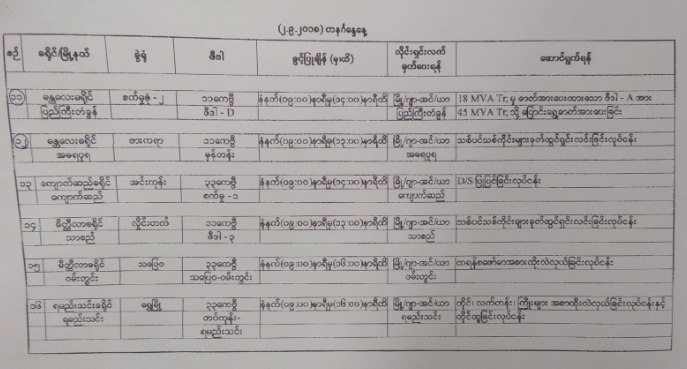 (၂.၉.၂၀၁၈) တနင်္ဂနွေနေ့
စဉ် ခရိုင်/မြို့နယ် ခွဲရုံ ဖီဒါ ခွင့်ပြုချိန် (မှ/ထိ) လိုင်းရှင်းလက် ဆောင်ရွက်ရန်
မှတ်ဝေးရန်
၁၁ မန္တလေးခရိုင် စက်မှုဇုန် - ၂ ၁၁ကေဗွီ နံနက်(၀၉:၀၀)နာရီမှ(၁၄:၀၀)နာရီထိ မြို့/ဂျာ-အင်/ယာ 18 MVA Tr, မှ ဓာတ်အားပေးထားသော ဖီဒါ - A အား
ပြည်ကြီးတံခွန် ဖီဒါ - D ပြည်ကြီးတံခွန် 45 MVA Tr, သို့ ပြောင်းရွှေ့ဓာတ်အားပေးခြင်း
၁၂ မန္တလေးခရိုင် တားကရာ ၁၁ကေဗွီ နံနက်(၀၉:၀၀)နာရီမှ(၁၃:၀၀)နာရီထိ မြို့/ဂျာ-အင်/ယာ သစ်ပင်သစ်ကိုင်းများခုတ်ထွင်ရှင်းလင်းခြင်းလုပ်ငန်း
အမရပူရ မုန်တန်း အမရပူရ
၁၃ ကျောက်ဆည်ခရိုင် အင်းကုန်း ၃၃ကေဗွီ နံနက်(၀၉:၀၀)နာရီမှ(၁၇:၀၀)နာရီထိ မြို့/ဂျာ-အင်/ယာ D/S ပြုပြင်ခြင်းလုပ်ငန်း
ကျောက်ဆည် စက်မှု - ၁ ကျောက်ဆည်
၁၄ မိတ္ထီလာခရိုင် လှိုင်းတက် ၁၁ကေဗွီ နံနက်(၀၉:၀၀)နာရီမှ(၁၃:၀၀)နာရီထိ မြို့/ဂျာ-အင်/ယာ သစ်ပင်သစ်ကိုင်းများခုတ်ထွင်ရှင်းလင်းခြင်းလုပ်ငန်း
သာစည် ဖီဒါ - ၃ သာစည်
၁၅ မိတ္ထီလာခရိုင် သပြေဝ ၃၃ကေဗွီ နံနက်(၀၉:၀၀)နာရီမှ(၁၆:၀၀)နာရီထိ မြို့/ဂျာ-အင်/ယာ အစားထိုးလဲလှယ်ခြင်းလုပ်ငန်း
ဝမ်းတွင်း သပြေဝ-ဝမ်းတွင်း ဝမ်းတွင်း
၁၆ ရမည်းသင်းခရိုင် ရွှေမြို့ ၃၃ကေဗွီ နံနက်(၀၉:၀၀)နာရီမှ(၁၆:၀၀)နာရီထိ မြို့/ဂျာ-အင်/ယာ တိုင်၊ လက်တန်း၊ ကြိုးများ အစားထိုးလဲလှယ်ခြင်းလုပ်ငန်းနှင့်
ရမည်းသင်း တပ်ကုန်း- ရမည်းသင်း တိုင်ထူခြင်းလုပ်ငန်း
ရမည်းသင်း